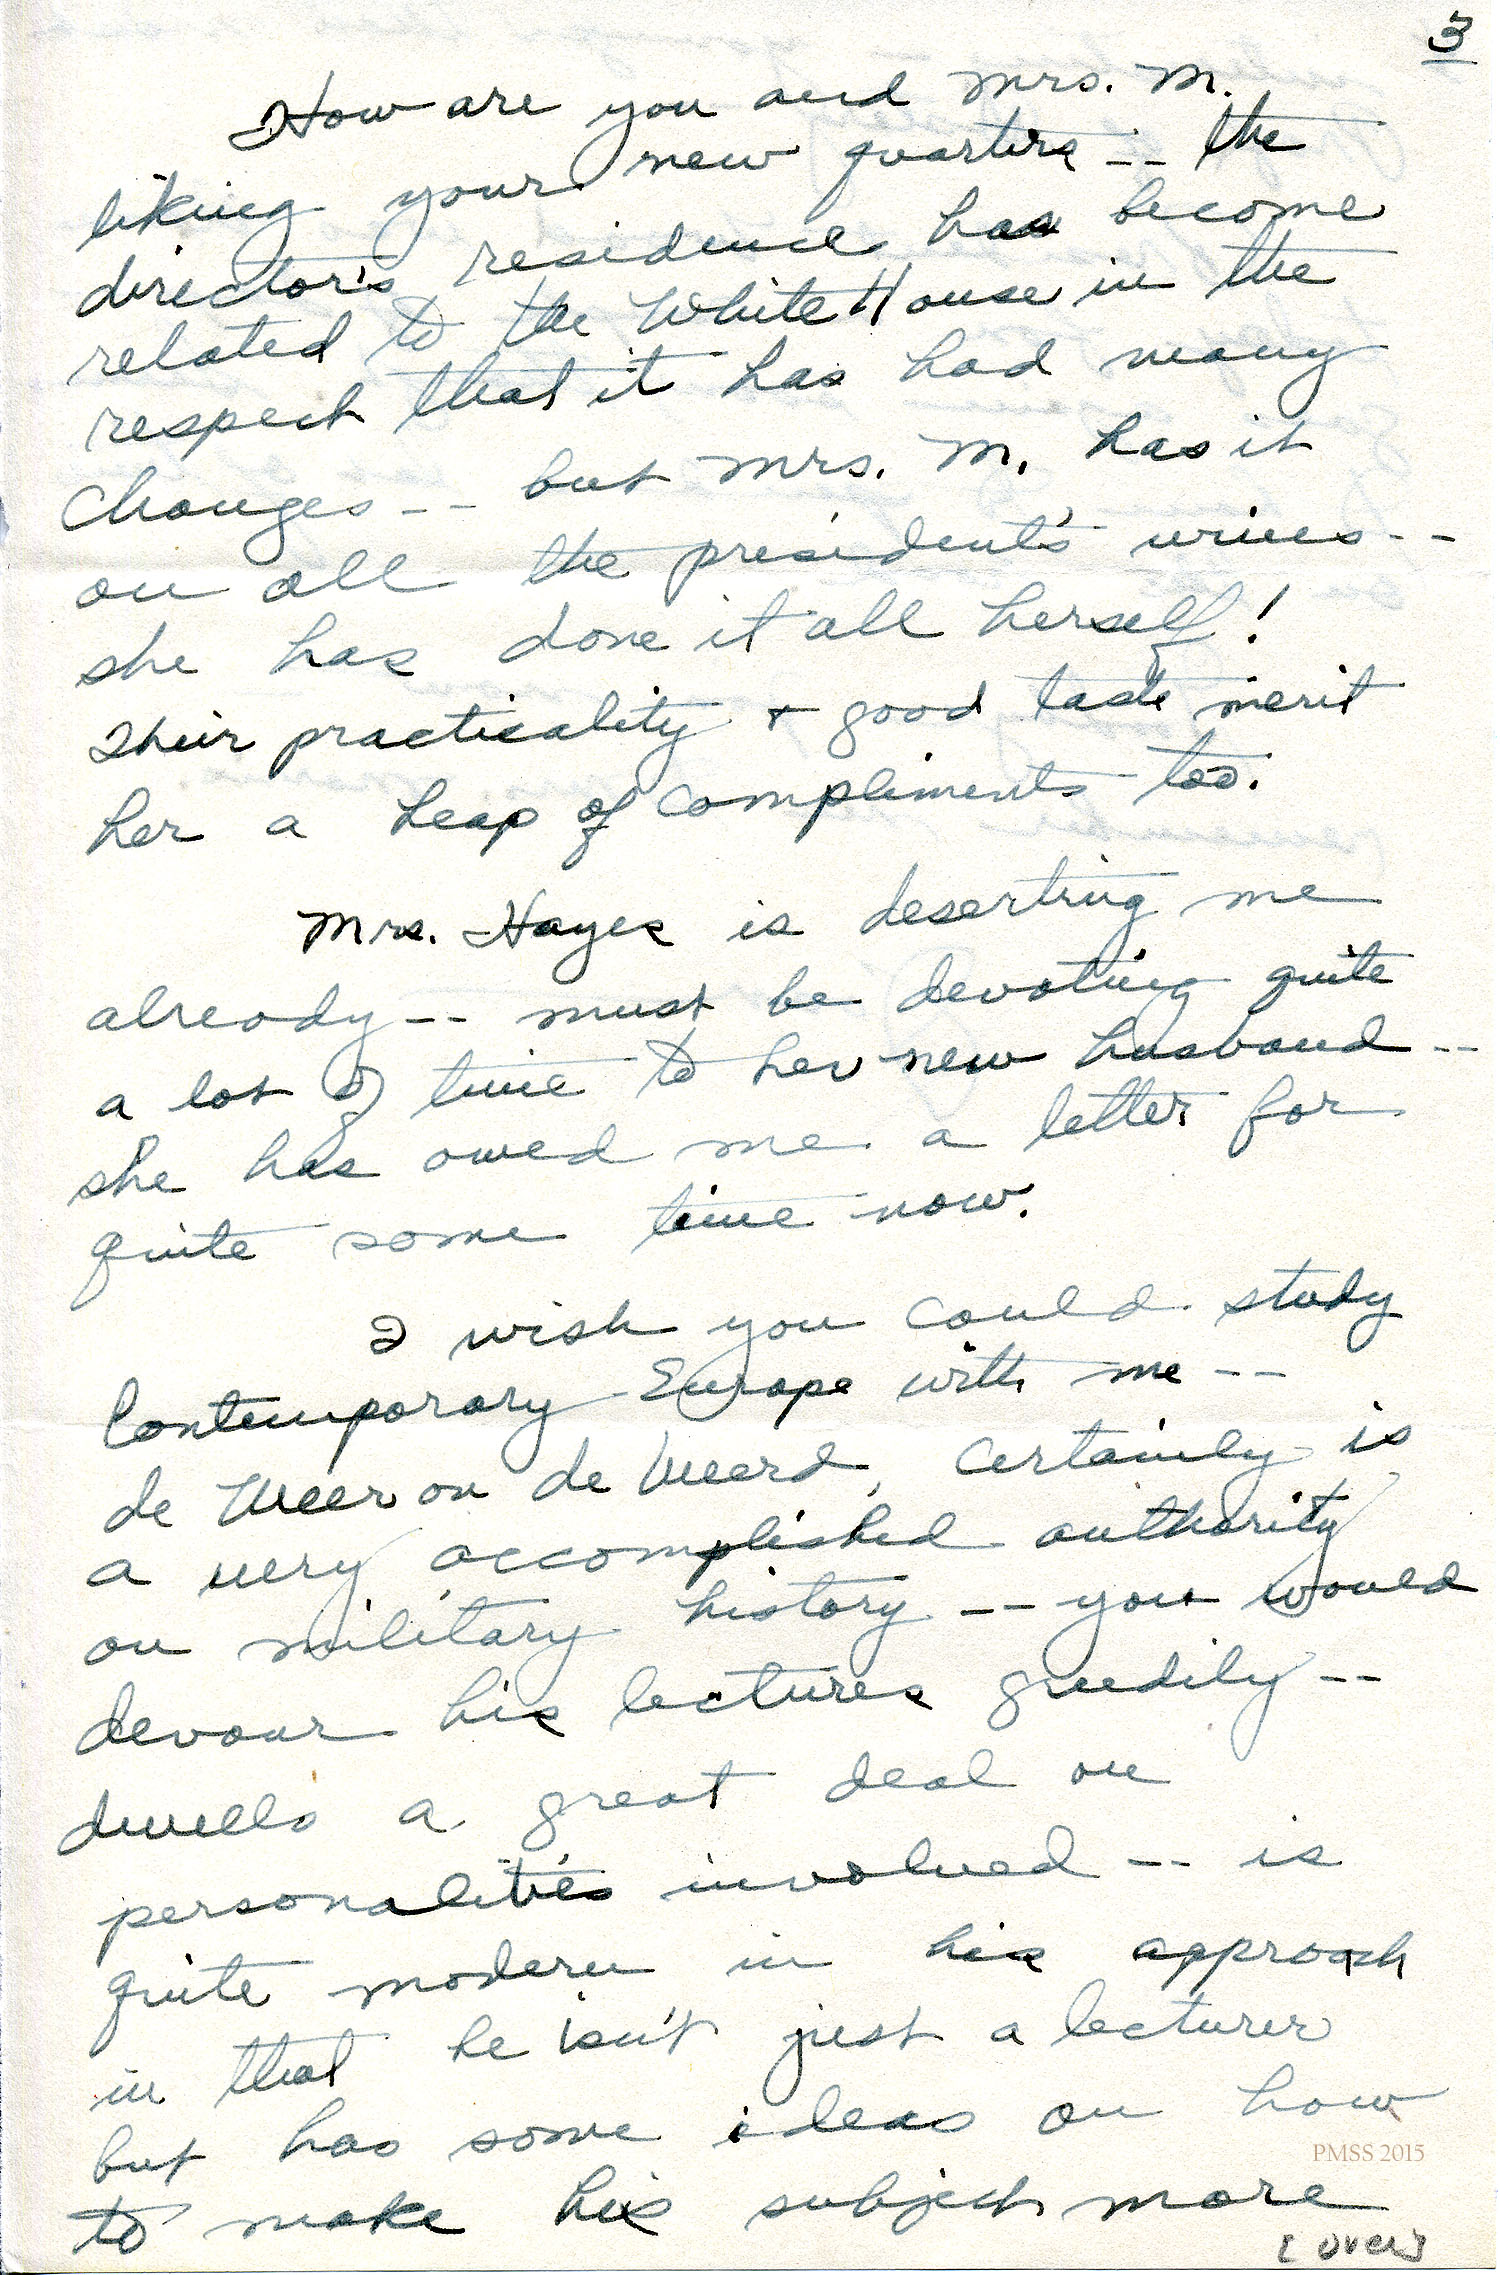 3
How are you and Mrs. M.
liking your new quarters -- the
director's residence has become
related to the White House in the
respect that it has had many
changes -- but Mrs. M. has it
on all the president's wives --
she has done it all herself!
Their practicality + good taste merit
her a heap of compliments too.
Mrs. Hayes is deserting me
already -- must be devoting quite
a lot of time to her new husband --
she has owed me a letter for
quite some time now.
I wish you could study
Contemporary Europe with me --
de Weer on de Weerd, certainly is
a very accomplished authority
on military history -- you would
devour his lectures greedily --
dwells a great deal on
personalities involved -- is
quite modern in his approach
in that he isn't just a lecturer
but has some ideas on how
PMSS 2015
to make his subject more
[over]